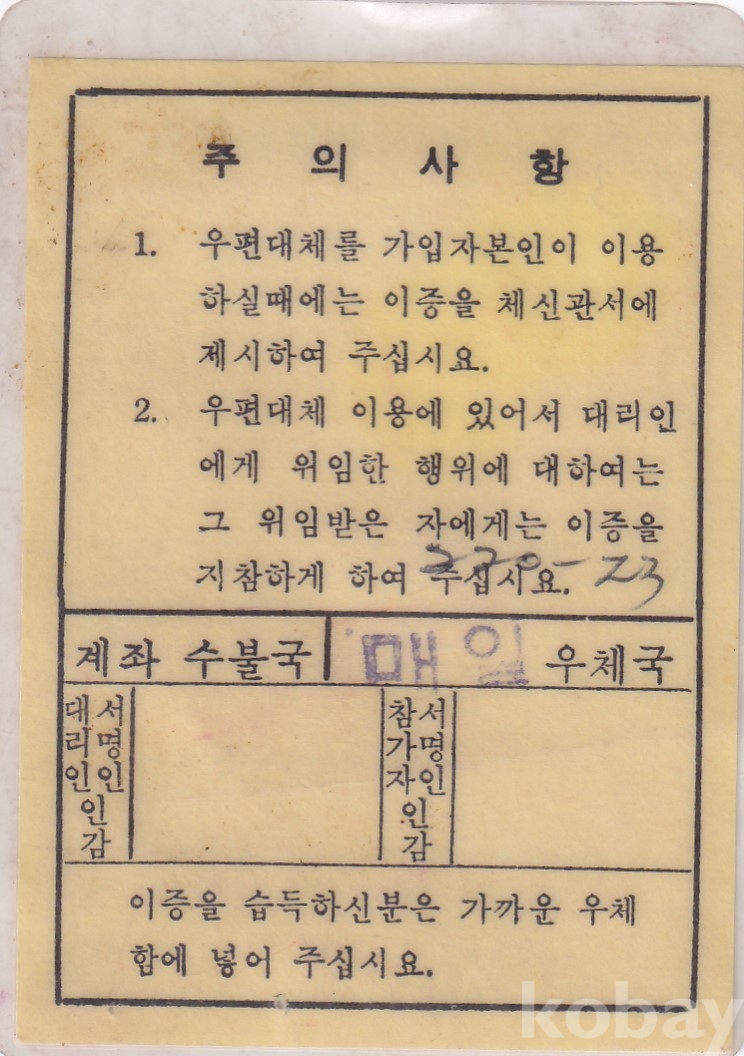 주 의 사 항
1. 우편대체를 가입자본인이 이용
하실때에는 이증을 체신관서에
제시하여 주십시요.
2. 우편대체 이용에 있어서 대리인
에게 위임한 행위에 대하여는
그 위임받은 자에게는 이증을
지참하게 하여 주십시요.
220-23
계좌 수불국 매일 우체국
대리인 서명인 인감
참가자 서명인 인감
이증을 습득하신분은 가까운 우체
함에 넣어 주십시요.
kobay